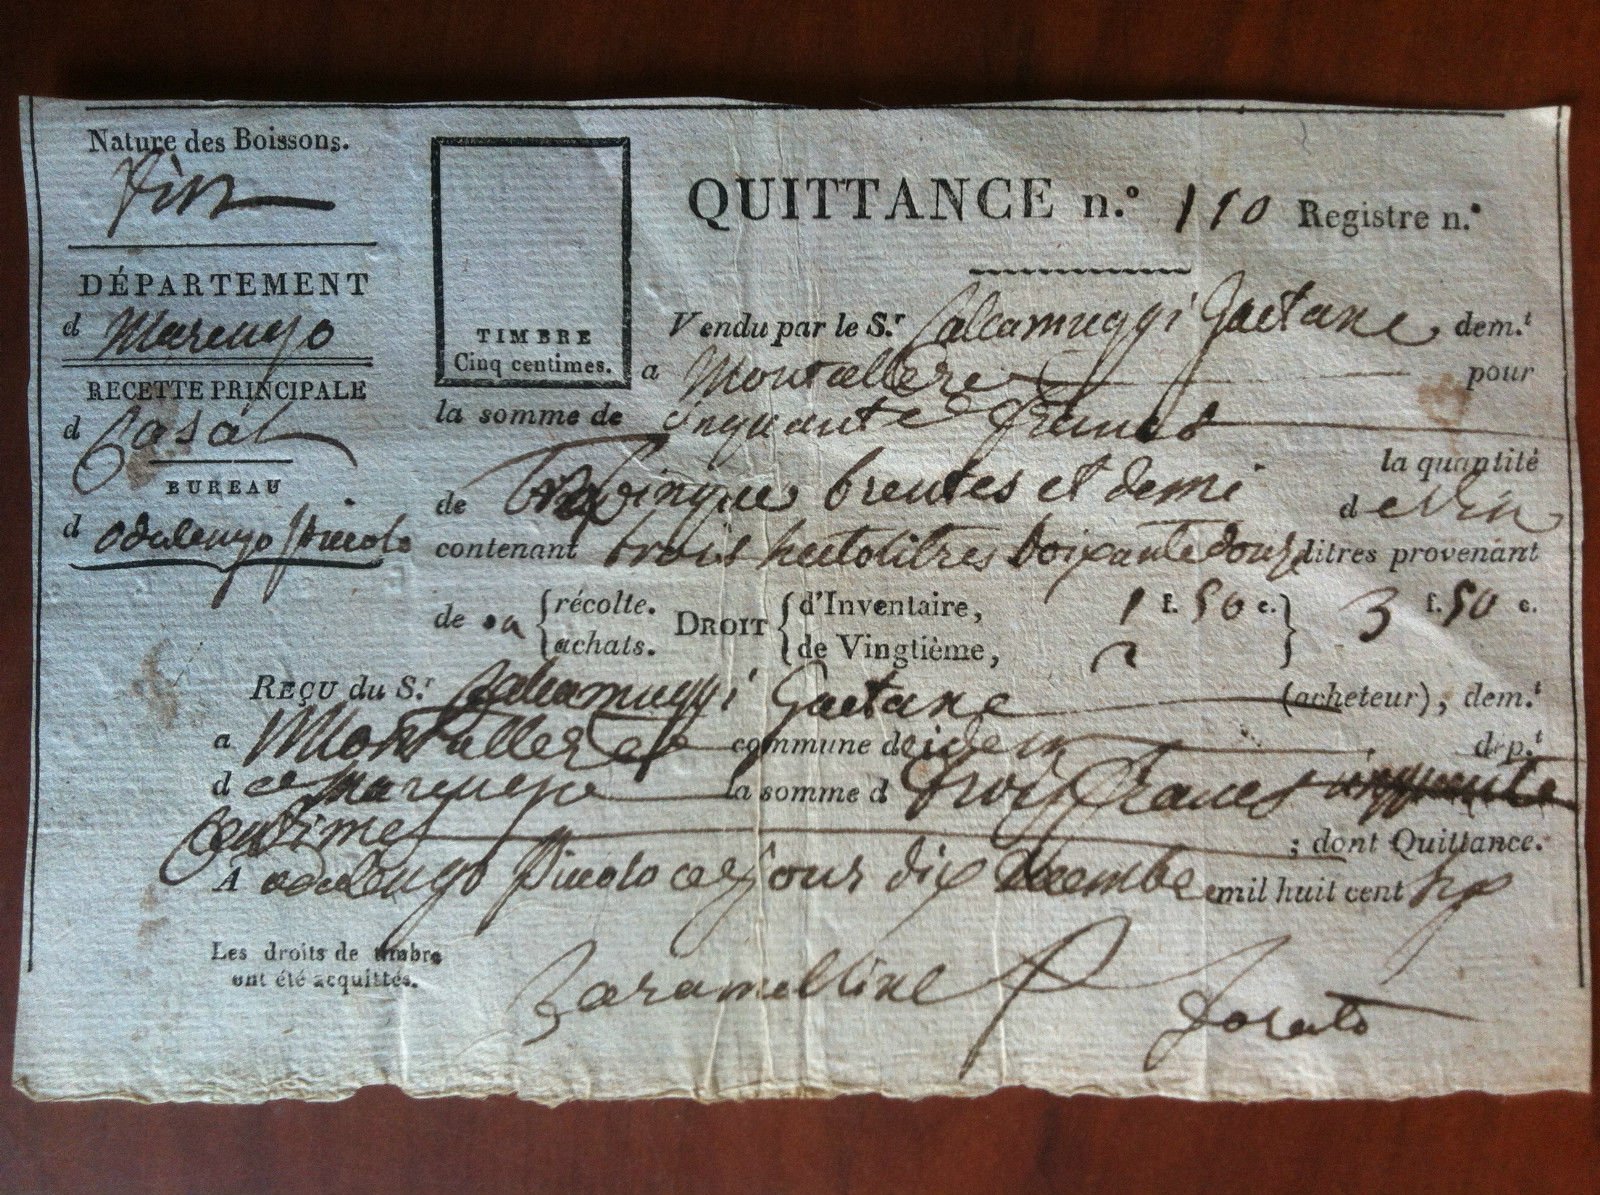 Nature des Boissons.
Vin
DÉPARTEMENT
d Marengo
RECETTE PRINCIPALE
d Casal
BUREAU
d odalengo Piccolo
TIMBRE
Cinq centimes.
QUITTANCE n.° 110 Registre n.°
Vendu par le S.r Calcamuggi Gaetane dem.t
a Montallere pour
la somme de cinquante francs
la quantité
de cinque brentes et demi de Vin
contenant trois hectolitres soixante douze litres provenant
de sa { récolte. achats. DROIT { d'Inventaire, 1 f. 50 c. } 3 f. 50 c.
de Vingtième, 2
REÇU du S.r Calcamuggi Gaetane (acheteur), dem.t
a Montallere commune de idem dép.t
d e Marengo la somme d trois francs cinquante
Centimes ; dont Quittance.
A odalengo Piccolo ce jour dix décembre mil huit cent six
Les droits de timbre
ont été acquittés.